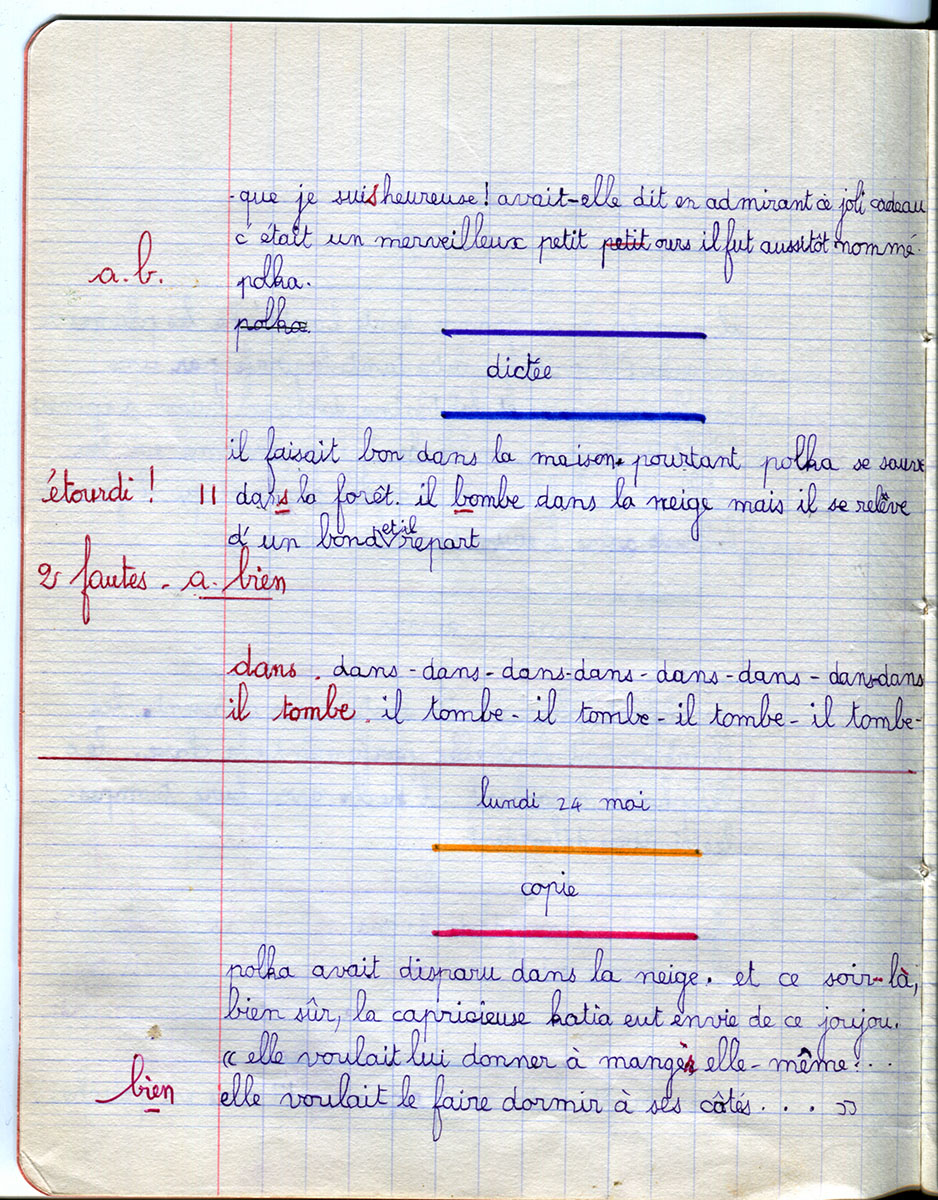 - que je suis heureuse ! avait-elle dit en admirant ce joli cadeau
c'était un merveilleux petit petit ours il fut aussitôt nommé
a.b.
polka.
polka.
dictée
il faisait bon dans la maison. pourtant polka se sauve
étourdi ! || dans la forêt. il bombe dans la neige mais il se relève
d'un bond et il repart
2 fautes - a. bien
dans . dans - dans - dans - dans - dans - dans - dans - dans
il tombe . il tombe - il tombe - il tombe - il tombe -
lundi 24 mai
copie
polka avait disparu dans la neige. et ce soir-là,
bien sûr, la capricieuse katia eut envie de ce joujou.
« elle voulait lui donner à manger elle-même !..
bien elle voulait le faire dormir à ses côtés. . . . »